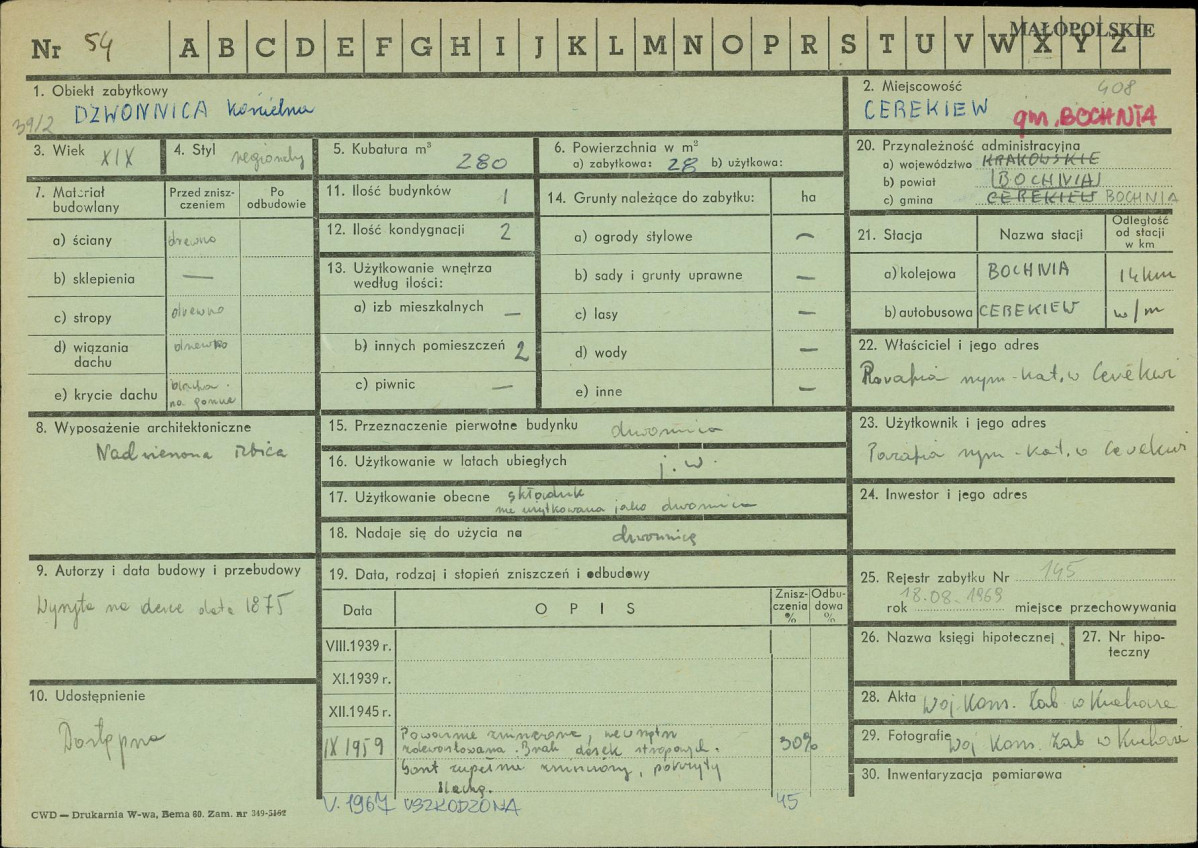 Nr 54 A B C D E F G H I J K L M N O P R S T U V W X Y Z
MAŁOPOLSKIE
1. Obiekt zabytkowy
DZWONNICA Kościelna
39/2
2. Miejscowość 408
CEREKIEW gm. BOCHNIA
3. Wiek XIX
4. Styl regionalny
5. Kubatura m³ 280
6. Powierzchnia w m²
a) zabytkowa: 28 b) użytkowa:
20. Przynależność administracyjna
a) województwo KRAKOWSKIE
b) powiat BOCHNIA
c) gmina CEREKIEW BOCHNIA
7. Materiał budowlany
Przed zniszczeniem
Po odbudowie
a) ściany drewno
b) sklepienia —
c) stropy drewno
d) wiązania dachu drewno
e) krycie dachu blacha na goncie
11. Ilość budynków 1
12. Ilość kondygnacji 2
13. Użytkowanie wnętrza według ilości:
a) izb mieszkalnych —
b) innych pomieszczeń 2
c) piwnic —
14. Grunty należące do zabytku: ha
a) ogrody stylowe —
b) sady i grunty uprawne —
c) lasy —
d) wody —
e) inne —
21. Stacja
Nazwa stacji
Odległość od stacji w km
a) kolejowa BOCHNIA 14 km
b) autobusowa CEREKIEW w/m
22. Właściciel i jego adres
Parafia rzym-kat. w Cerekwi
8. Wyposażenie architektoniczne
Nadwieszona izbica
15. Przeznaczenie pierwotne budynku dzwonnica
16. Użytkowanie w latach ubiegłych j. w.
17. Użytkowanie obecne składzik
nie użytkowana jako dzwonnica
18. Nadaje się do użycia na dzwonnicę
23. Użytkownik i jego adres
Parafia rzym-kat. w Cerekwi
24. Inwestor i jego adres
9. Autorzy i data budowy i przebudowy
Wyryta na desce data 1875
19. Data, rodzaj i stopień zniszczeń i odbudowy
Data
OPIS
Zniszczenia %
Odbudowa %
VIII.1939 r.
XI.1939 r.
XII.1945 r.
IX 1959 Poważnie zniszczona, wewnątrz
zdewastowana. Brak desek stropowych. 30%
Gont zupełnie zniszczony, pokryty
blachą.
V. 1967 USZKODZONA 45
25. Rejestr zabytku Nr 145
rok 18.08.1969 miejsce przechowywania
26. Nazwa księgi hipotecznej
27. Nr hipoteczny
10. Udostępnienie
Dostępna
28. Akta Woj. Kons. Zab. w Krakowie
29. Fotografie Woj. Kons. Zab w Krakowie
30. Inwentaryzacja pomiarowa
CWD — Drukarnia W-wa, Bema 60. Zam. nr 349-5162